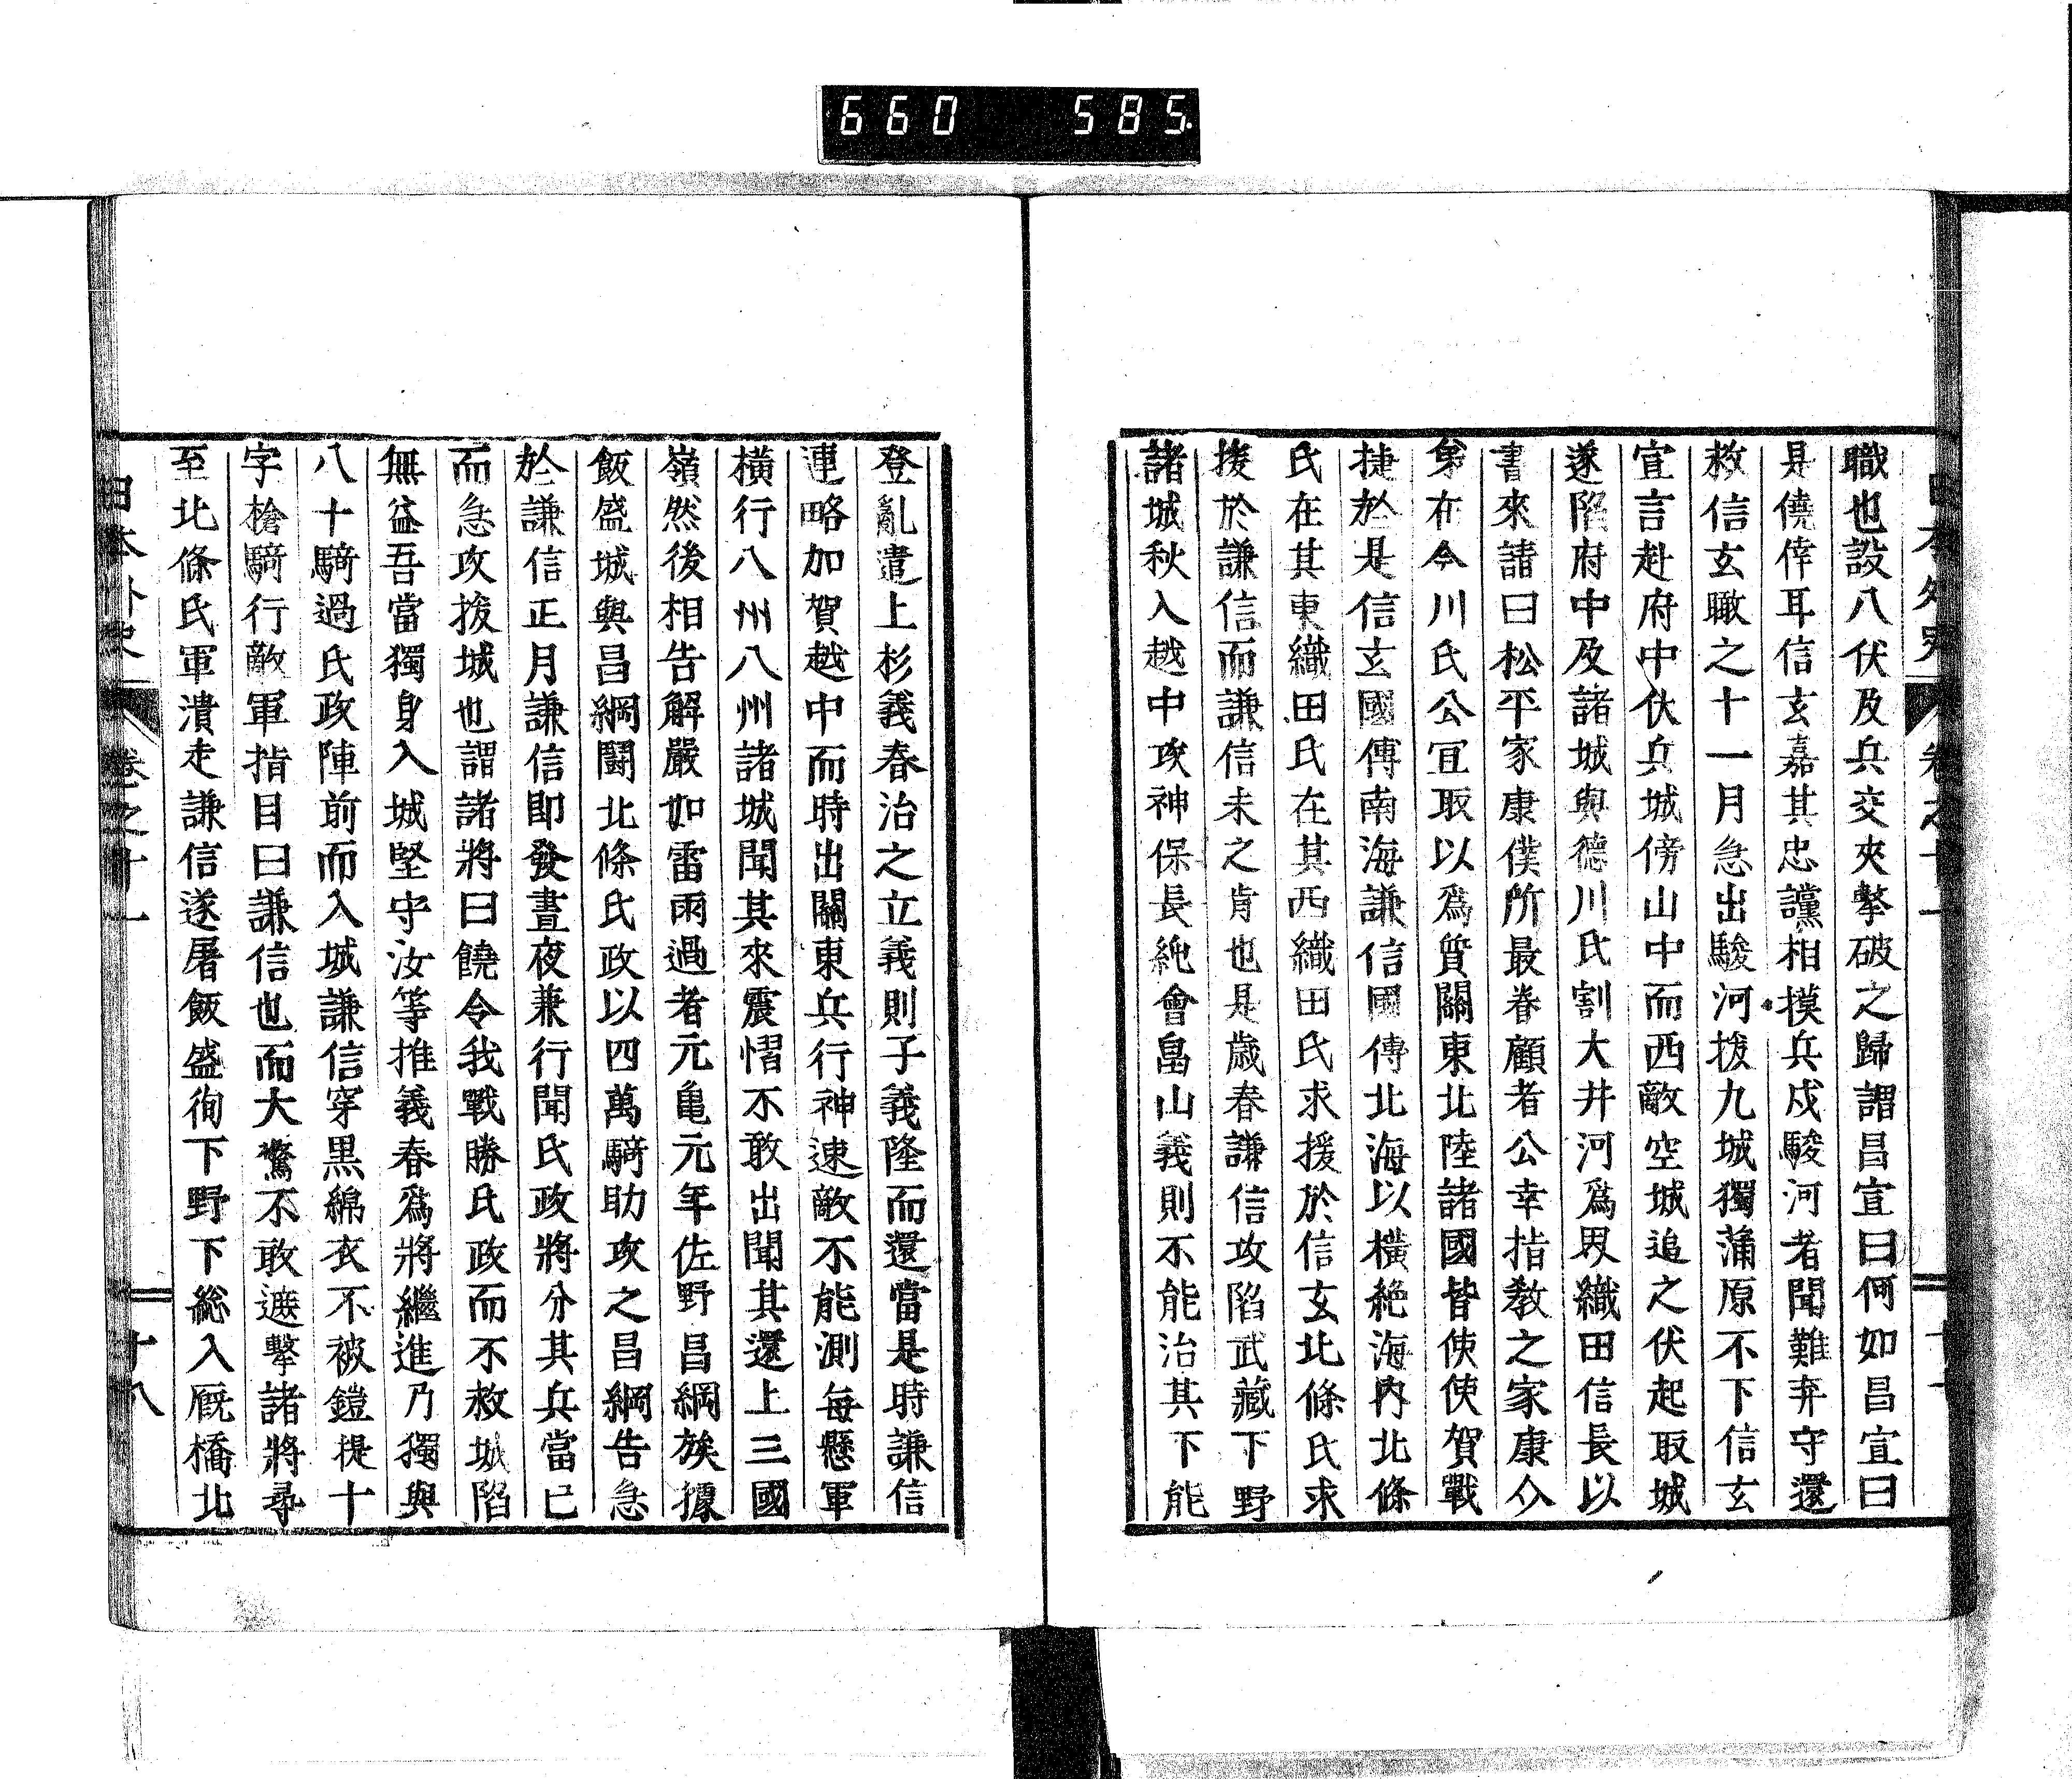 660 585
職也設八伏及兵交夾擊破之歸謂昌宣曰何如昌宣曰
是僥倖耳信玄嘉其忠讜相摸兵戍駿河者聞難弃守還
救信玄瞰之十一月急出駿河拔九城獨蒲原不下信玄
宣言赴府中伏兵城傍山中而西敵空城追之伏起取城
遂陷府中及諸城與德川氏割大井河爲界織田信長以
書來請曰松平家康僕所最眷顧者公幸指教之家康介
弟在今川氏公宜取以爲質關東北陸諸國皆使使賀戰
捷於是信玄國傳南海謙信國傳北海以橫絶海內北條
氏在其東織田氏在其西織田氏求援於信玄北條氏求
援於謙信而謙信未之肯也是歲春謙信攻陷武藏下野
諸城秋入越中攻神保長純會畠山義則不能治其下能
登亂遣上杉義春治之立義則子義隆而還當是時謙信
連略加賀越中而時出關東兵行神速敵不能測每懸軍
橫行八州八州諸城聞其來震慴不敢出聞其還上三國
嶺然後相告解嚴如雷雨過者元龜元年佐野昌綱族據
飯盛城與昌綱鬪北條氏政以四萬騎助攻之昌綱告急
於謙信正月謙信即發晝夜兼行聞氏政將分其兵當已
而急攻拔城也謂諸將曰饒令我戰勝氏政而不救城陷
無益吾當獨身入城堅守汝等推義春爲將繼進乃獨與
八十騎過氏政陣前而入城謙信穿黑綿衣不被鎧提十
字槍騎行敵軍指目曰謙信也而大驚不敢遮擊諸將尋
至北條氏軍潰走謙信遂屠飯盛徇下野下総入厩橋北
日本外史 卷之十一 十八